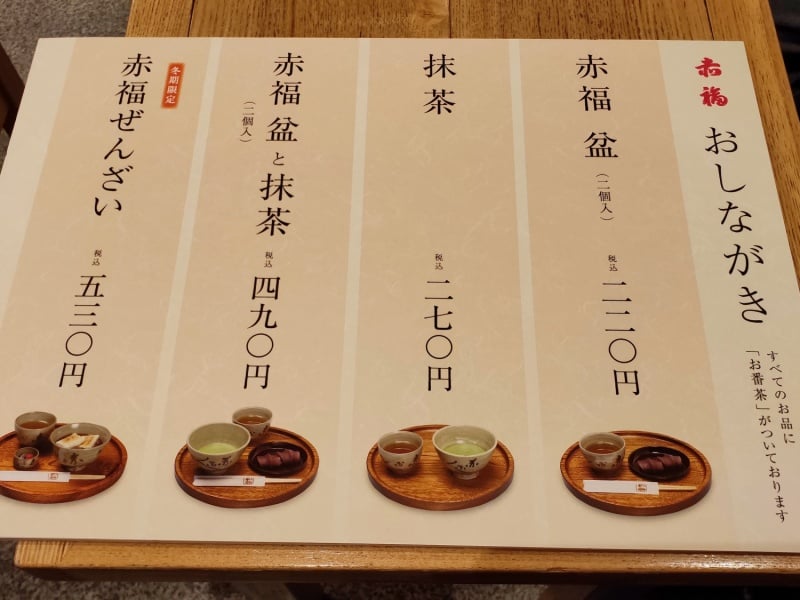 赤福
おしながき
すべてのお品に
「お番茶」がついております
赤福 盆
(二個入)
税込
二二〇円
抹茶
税込
二七〇円
赤福 盆と抹茶
(二個入)
税込
四九〇円
冬期限定
赤福ぜんざい
税込
五三〇円